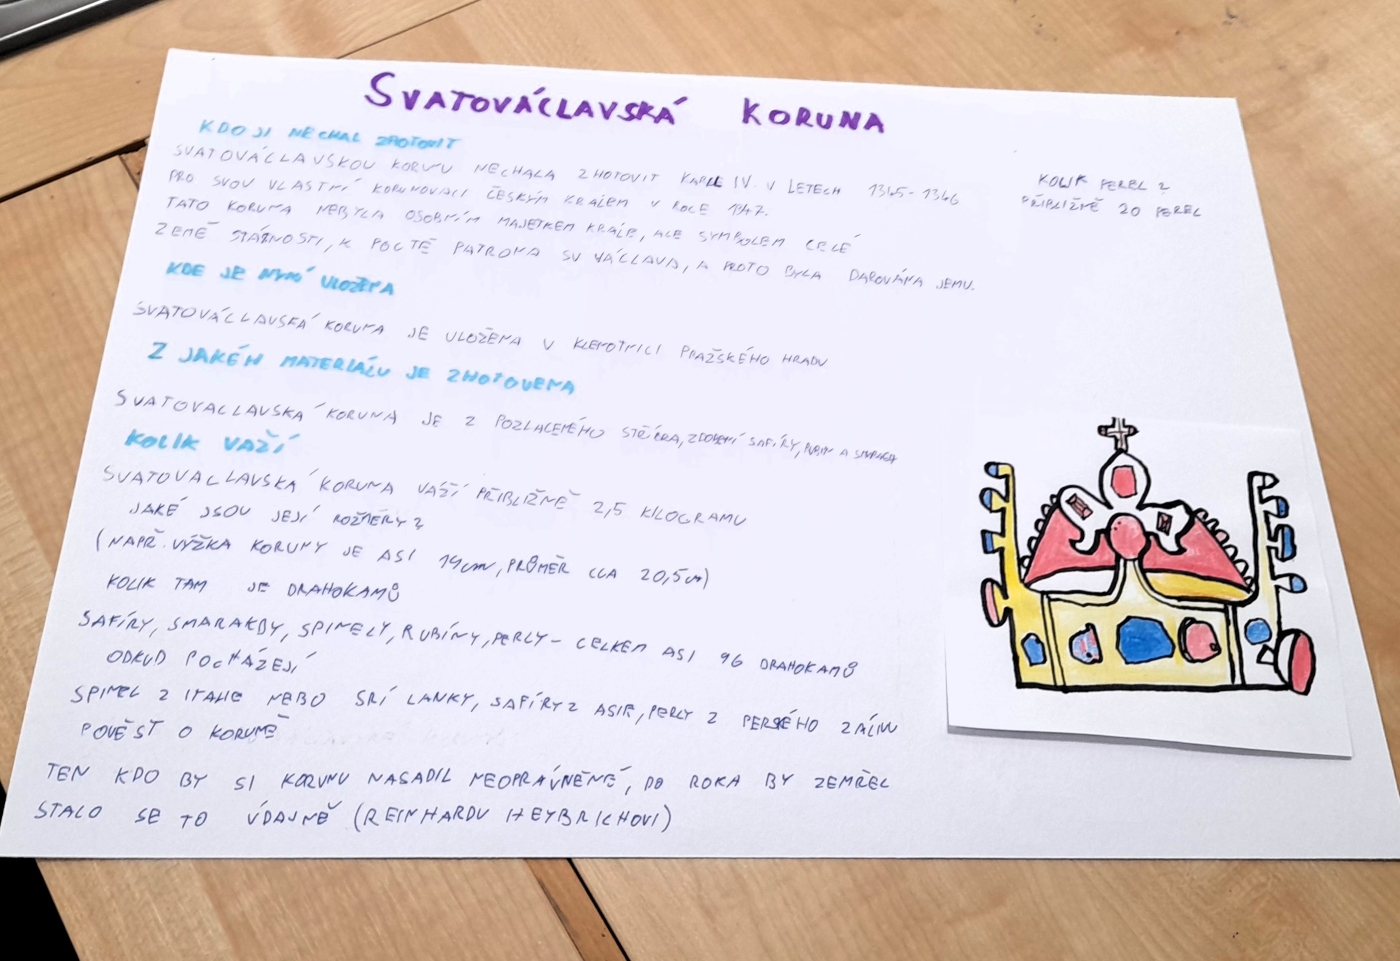 SVATOVÁCLAVSKÁ KORUNA
KDO JI NECHAL ZHOTOVIT
SVATOVÁCLAVSKOU KORUNU NECHALA ZHOTOVIT KAREL IV. V LETECH 1345-1346
PRO SVOU VLASTNÍ KORUNOVACI ČESKÝM KRÁLEM V ROCE 1347.
TATO KORUNA NEBYLA OSOBNÍM MAJETKEM KRÁLE, ALE SYMBOLEM CELÉ
ZEMĚ STÁTNOSTI, K POCTĚ PATRONA SV VÁCLAVA, A PROTO BYLA DAROVÁNA JEMU.
KDE JE NYNÍ ULOŽENA
SVATOVÁCLAVSKÁ KORUNA JE ULOŽENA V KLENOTNICI PRAŽSKÉHO HRADU
Z JAKÉH MATERIÁLU JE ZHOTOVENA
SVATOVACLAVSKÁ KORUNA JE Z POZLACENÉHO STŘÍBRA, ZDOBENÍ SAFÍRY, RUBÍN A
KOLIK VAŽÍ
SVATOVACLAVSKÁ KORUNA VAŽÍ PŘIBLIŽNĚ 2,5 KILOGRAMU
JAKÉ JSOU JEJÍ ROZMĚRY?
(NAPŘ. VÝŠKA KORUNY JE ASI 19cm, PRŮMĚR CCA 20,5cm)
KOLIK TAM JE DRAHOKAMŮ
SAFÍRY, SMARAKDY, SPINELY, RUBÍNY, PERLY - CELKEM ASI 96 DRAHOKAMŮ
ODKUD POCHÁZEJÍ
SPINEL Z ITALIE NEBO SRÍ LANKY, SAFÍRY Z ASIE, PERLY Z PERSKÉHO ZÁLIVU
POVĚST O KORUNĚ
TEN KDO BY SI KORUNU NASADIL NEOPRÁVNĚNĚ, DO ROKA BY ZEMŘEL
STALO SE TO ÚDAJNĚ (REINHARDU HEYDRICHOVI)
KOLIK PEREL ?
PŘIBLIŽNĚ 20 PEREL